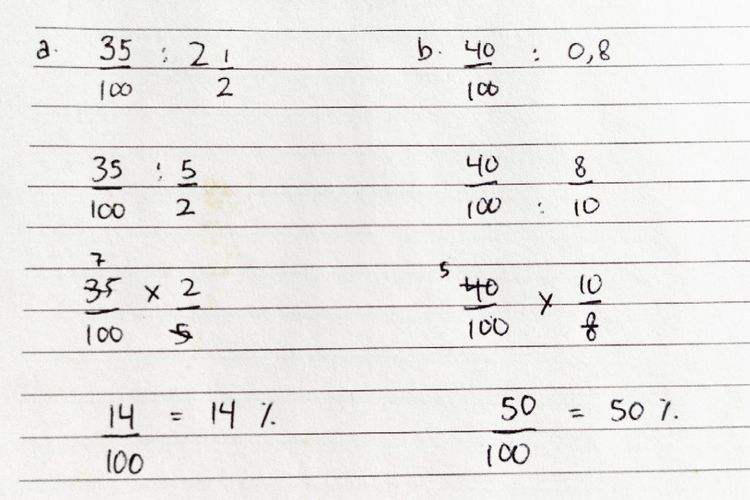 a. 35/100 : 2 1/2
35/100 : 5/2
7
35/100 x 2/5
14/100 = 14 %
b. 40/100 : 0,8
40/100 : 8/10
5
40/100 x 10/8
50/100 = 50 %.